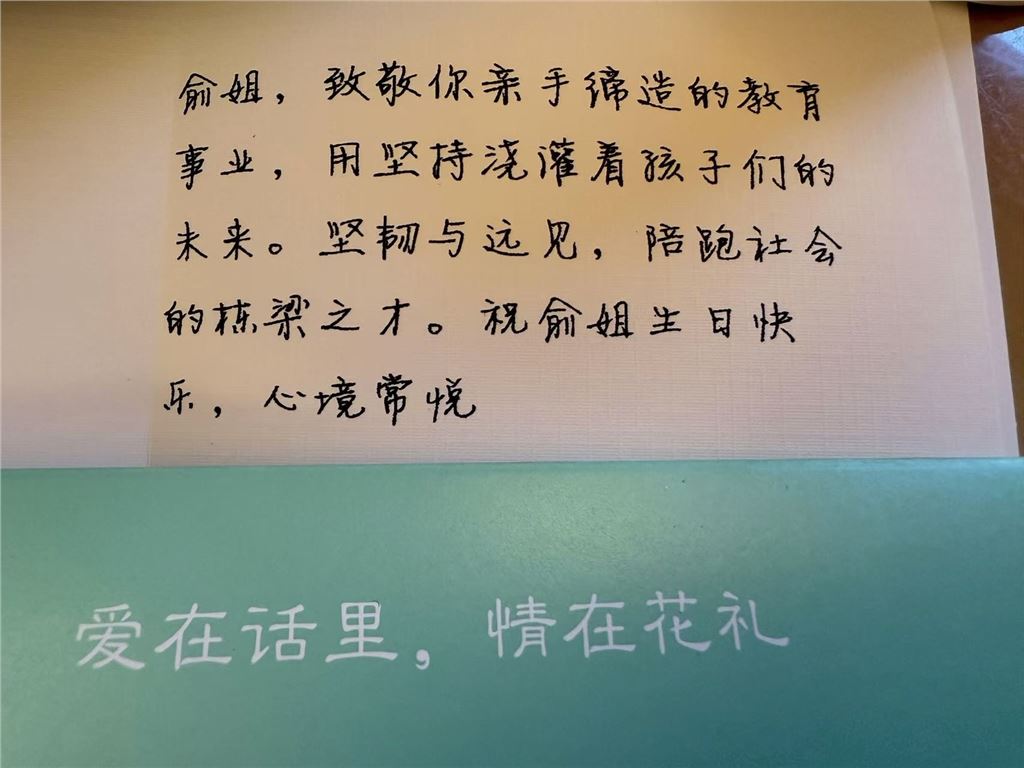 俞姐，致敬你亲手缔造的教育
事业，用坚持浇灌着孩子们的
未来。坚韧与远见，陪跑社会
的栋梁之才。祝俞姐生日快
乐，心境常悦
爱在话里，情在花礼